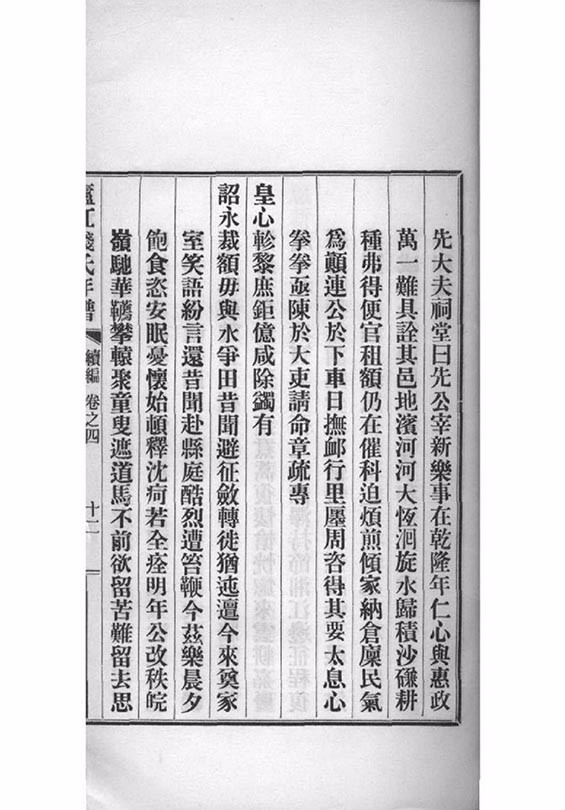 先大夫祠堂曰先公宰新樂事在乾隆年仁心與惠政
萬一難具詮其邑地濱河河大恆洄旋水歸積沙磏耕
種弗得便官租額仍在催科迫煩煎傾家納倉廩民氣
爲顚連公於下車日撫邺行里廛周咨得其要太息心
拳拳亟陳於大吏請命章疏專
皇心軫黎庶鉅億咸除蠲有
詔永裁額毋與水爭田昔聞避征斂轉徙猶迍邅今來奠家
室笑語紛言還昔聞赴縣庭酷烈遭笞鞭今茲樂晨夕
飽食恣安眠憂懷始頓釋沈疴若全痊明年公改秩皖
嶺馳華韉攀轅聚童叟遮道馬不前欲留苦難留去思
廬江錢氏年譜 續編 卷之四 十二